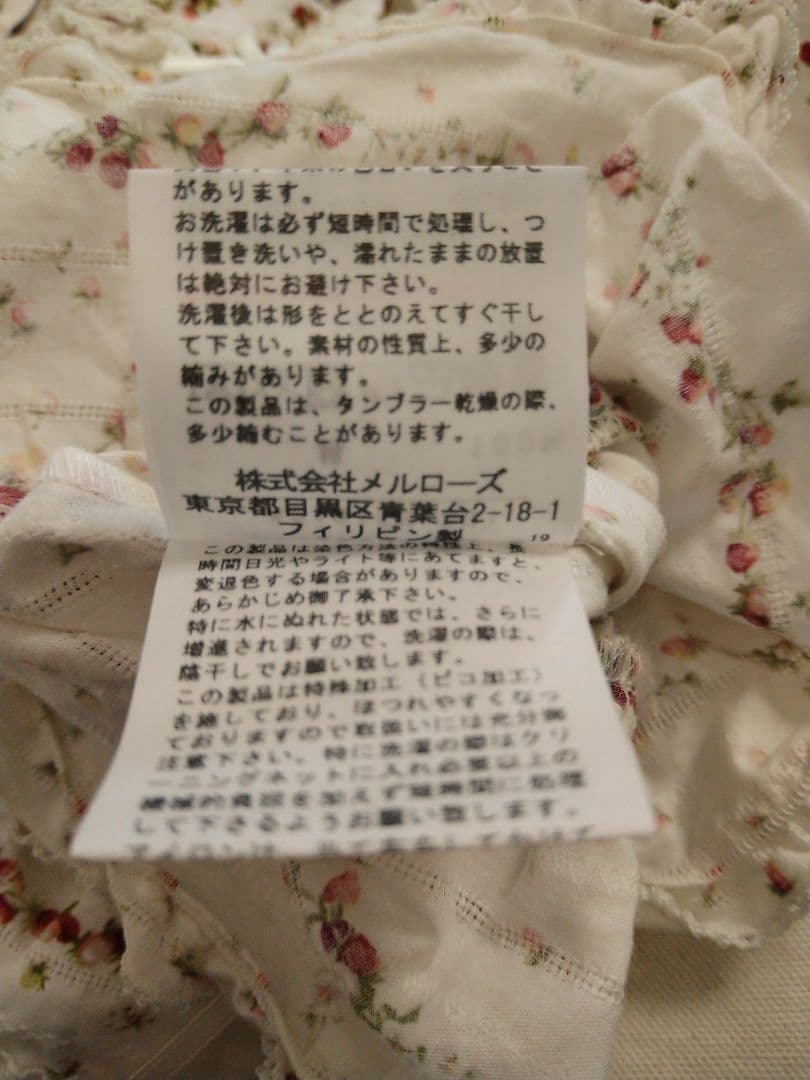 があります。
お洗濯は必ず短時間で処理し、つ
け置き洗いや、濡れたままの放置
は絶対にお避け下さい。
洗濯後は形をととのえてすぐ干し
て下さい。素材の性質上、多少の
縮みがあります。
この製品は、タンブラー乾燥の際、
多少縮むことがあります。
株式会社メルローズ
東京都目黒区青葉台2-18-1
フィリピン製
19
この製品は染色方法の特性上、長
時間日光やライト等にあてますと、
変退色する場合がありますので、
あらかじめ御了承下さい。
特に水にぬれた状態では、さらに
増進されますので、洗濯の際は、
陰干しでお願い致します。
この製品は特殊加工（ピコ加工）
を施しており、ほつれやすくなっ
ておりますので取扱いには充分御
注意下さい。特に洗濯の際はクリ
ーニングネットに入れ必要以上の
機械的負担を加えず短時間に処理
して下さるようお願い致します。